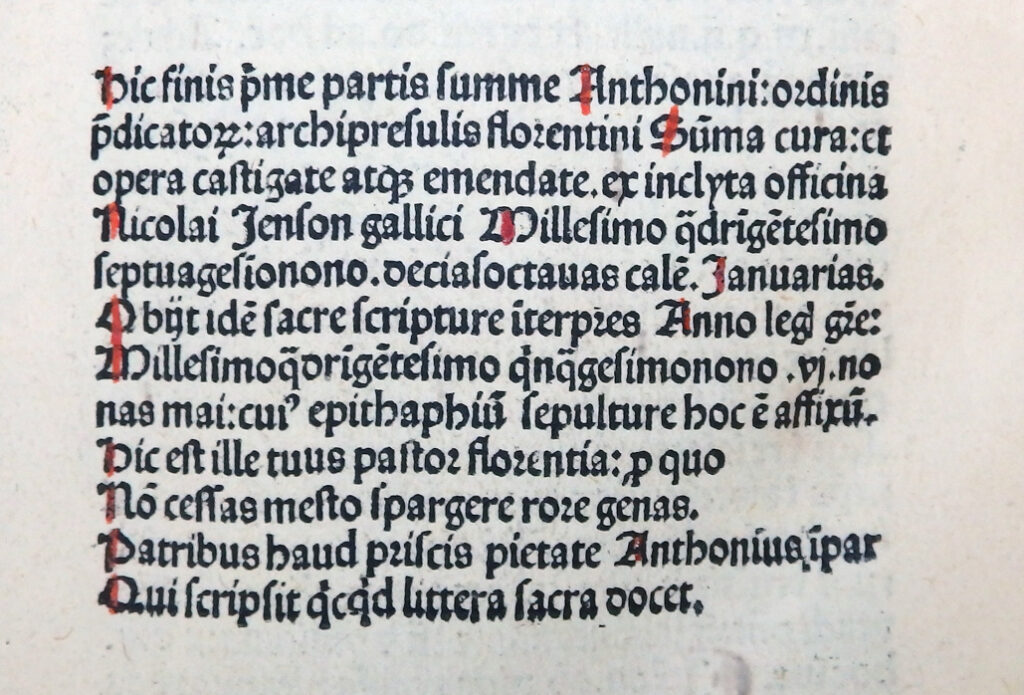 Hic finis p̄me partis ſumme Anthonini: ordinis
p̄dicatoꝝ: archipreſulis florentini Sūma cura: et
opera caſtigate atqꝫ emendate. ex inclyta officina
Nicolai Jenſon gallici Milleſimo q̄drigēteſimo
ſeptuageſionono. deciaſoctauas calē. Januarias.
Obijt idē ſacre ſcripture īterpꝛes Anno legl̓ gr̄e:
Milleſimoq̄drigēteſimo qͥnq̄geſimonono .vj. no
nas mai: cuiꝰ epithaphiū ſepulture hoc ē affixū.
Hic eſt ille tuus paſtoꝛ floꝛentia: ꝑ quo
Nō ceſſas meſto ſpargere roꝛe genas.
Patribus haud pꝛiſcis pietate Anthonius īpar
Qui ſcripſit qͥcqͥd littera ſacra docet.